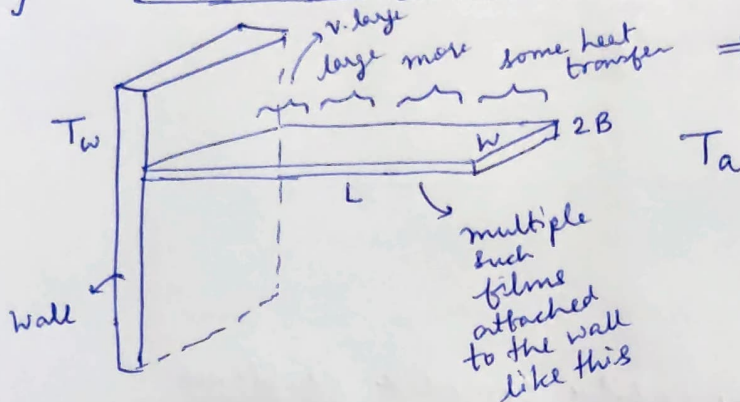 v. large
large more some heat
transfer
=
Tw
W
2B
Ta
L
multiple
such
films
attached
to the wall
like this
Wall